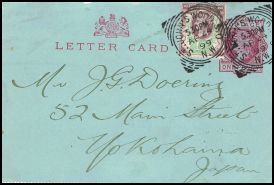 LETTER CARD
Mr J. G. Doering
52 Main Street
Yokohama
Japan